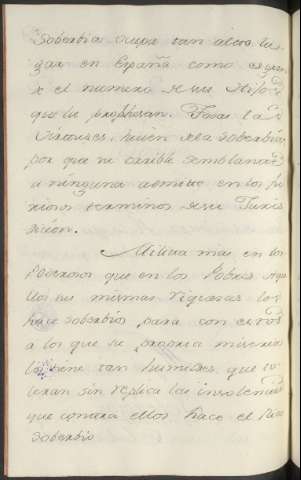 Soberbia ocupa tan alto lu
gar en España como es gran
de el numero de sus Hijos
que la professan. Todas las
Virtudes, huien de la Soberbia
por que ni visible semblanza
a ninguna admite en los pro
ximos terminos de su Juris
dicion.
Milita mas en los
Poderosos que en los Pobres. Aque
llos sus mismas riquezas los
hace soberbios para con estos
a los que su propria miseria
los tiene tan humildes, que to
leran sin replica las insolencias
que contra ellos hace el Rico
soberbio